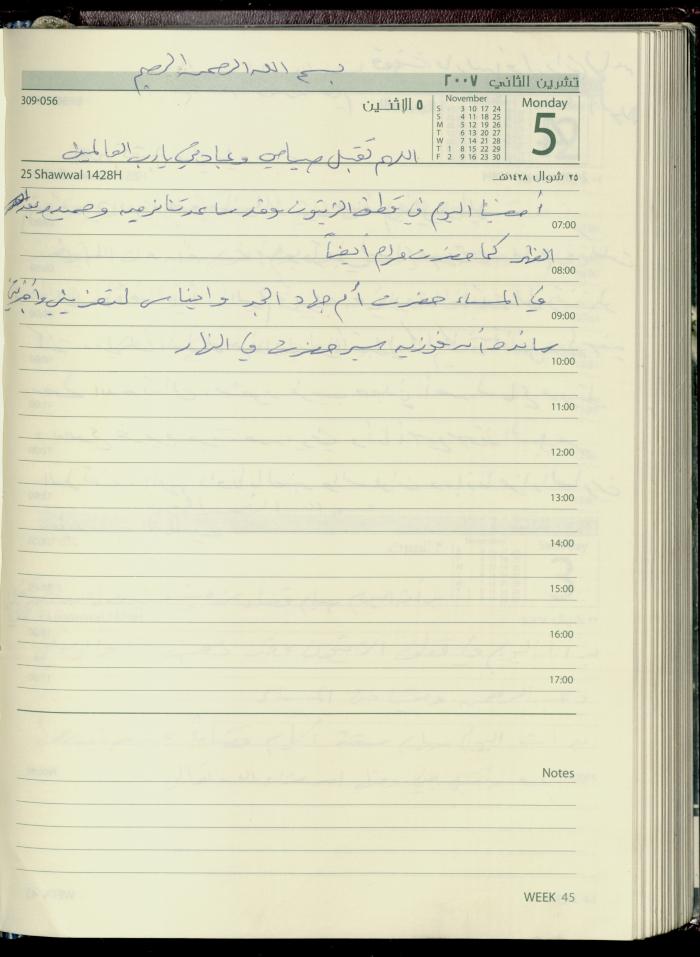 بسم الله الرحمن الرحيم
تشرين الثاني ٢٠٠٧
309-056
٥ الاثنين
November
S 3 10 17 24
S 4 11 18 25
M 5 12 19 26
T 6 13 20 27
W 7 14 21 28
T 1 8 15 22 29
F 2 9 16 23 30
Monday
5
اللهم تقبل صيامي وعبادتي يا رب العالمين
25 Shawwal 1428H
٢٥ شوال ١٤٢٨هـ
أمضينا اليوم في قطف الزيتون وقد ساعدتنا نرمين وحميد وبعد
07:00
الظهر كما حضرت مرام أيضاً
08:00
في المساء حضرت أم جهاد الجبر وايناس لتعزيتي وأخبرتني
09:00
سائدة أن فوزيه سير حضرت في النهار
10:00
11:00
12:00
13:00
14:00
15:00
16:00
17:00
Notes
WEEK 45